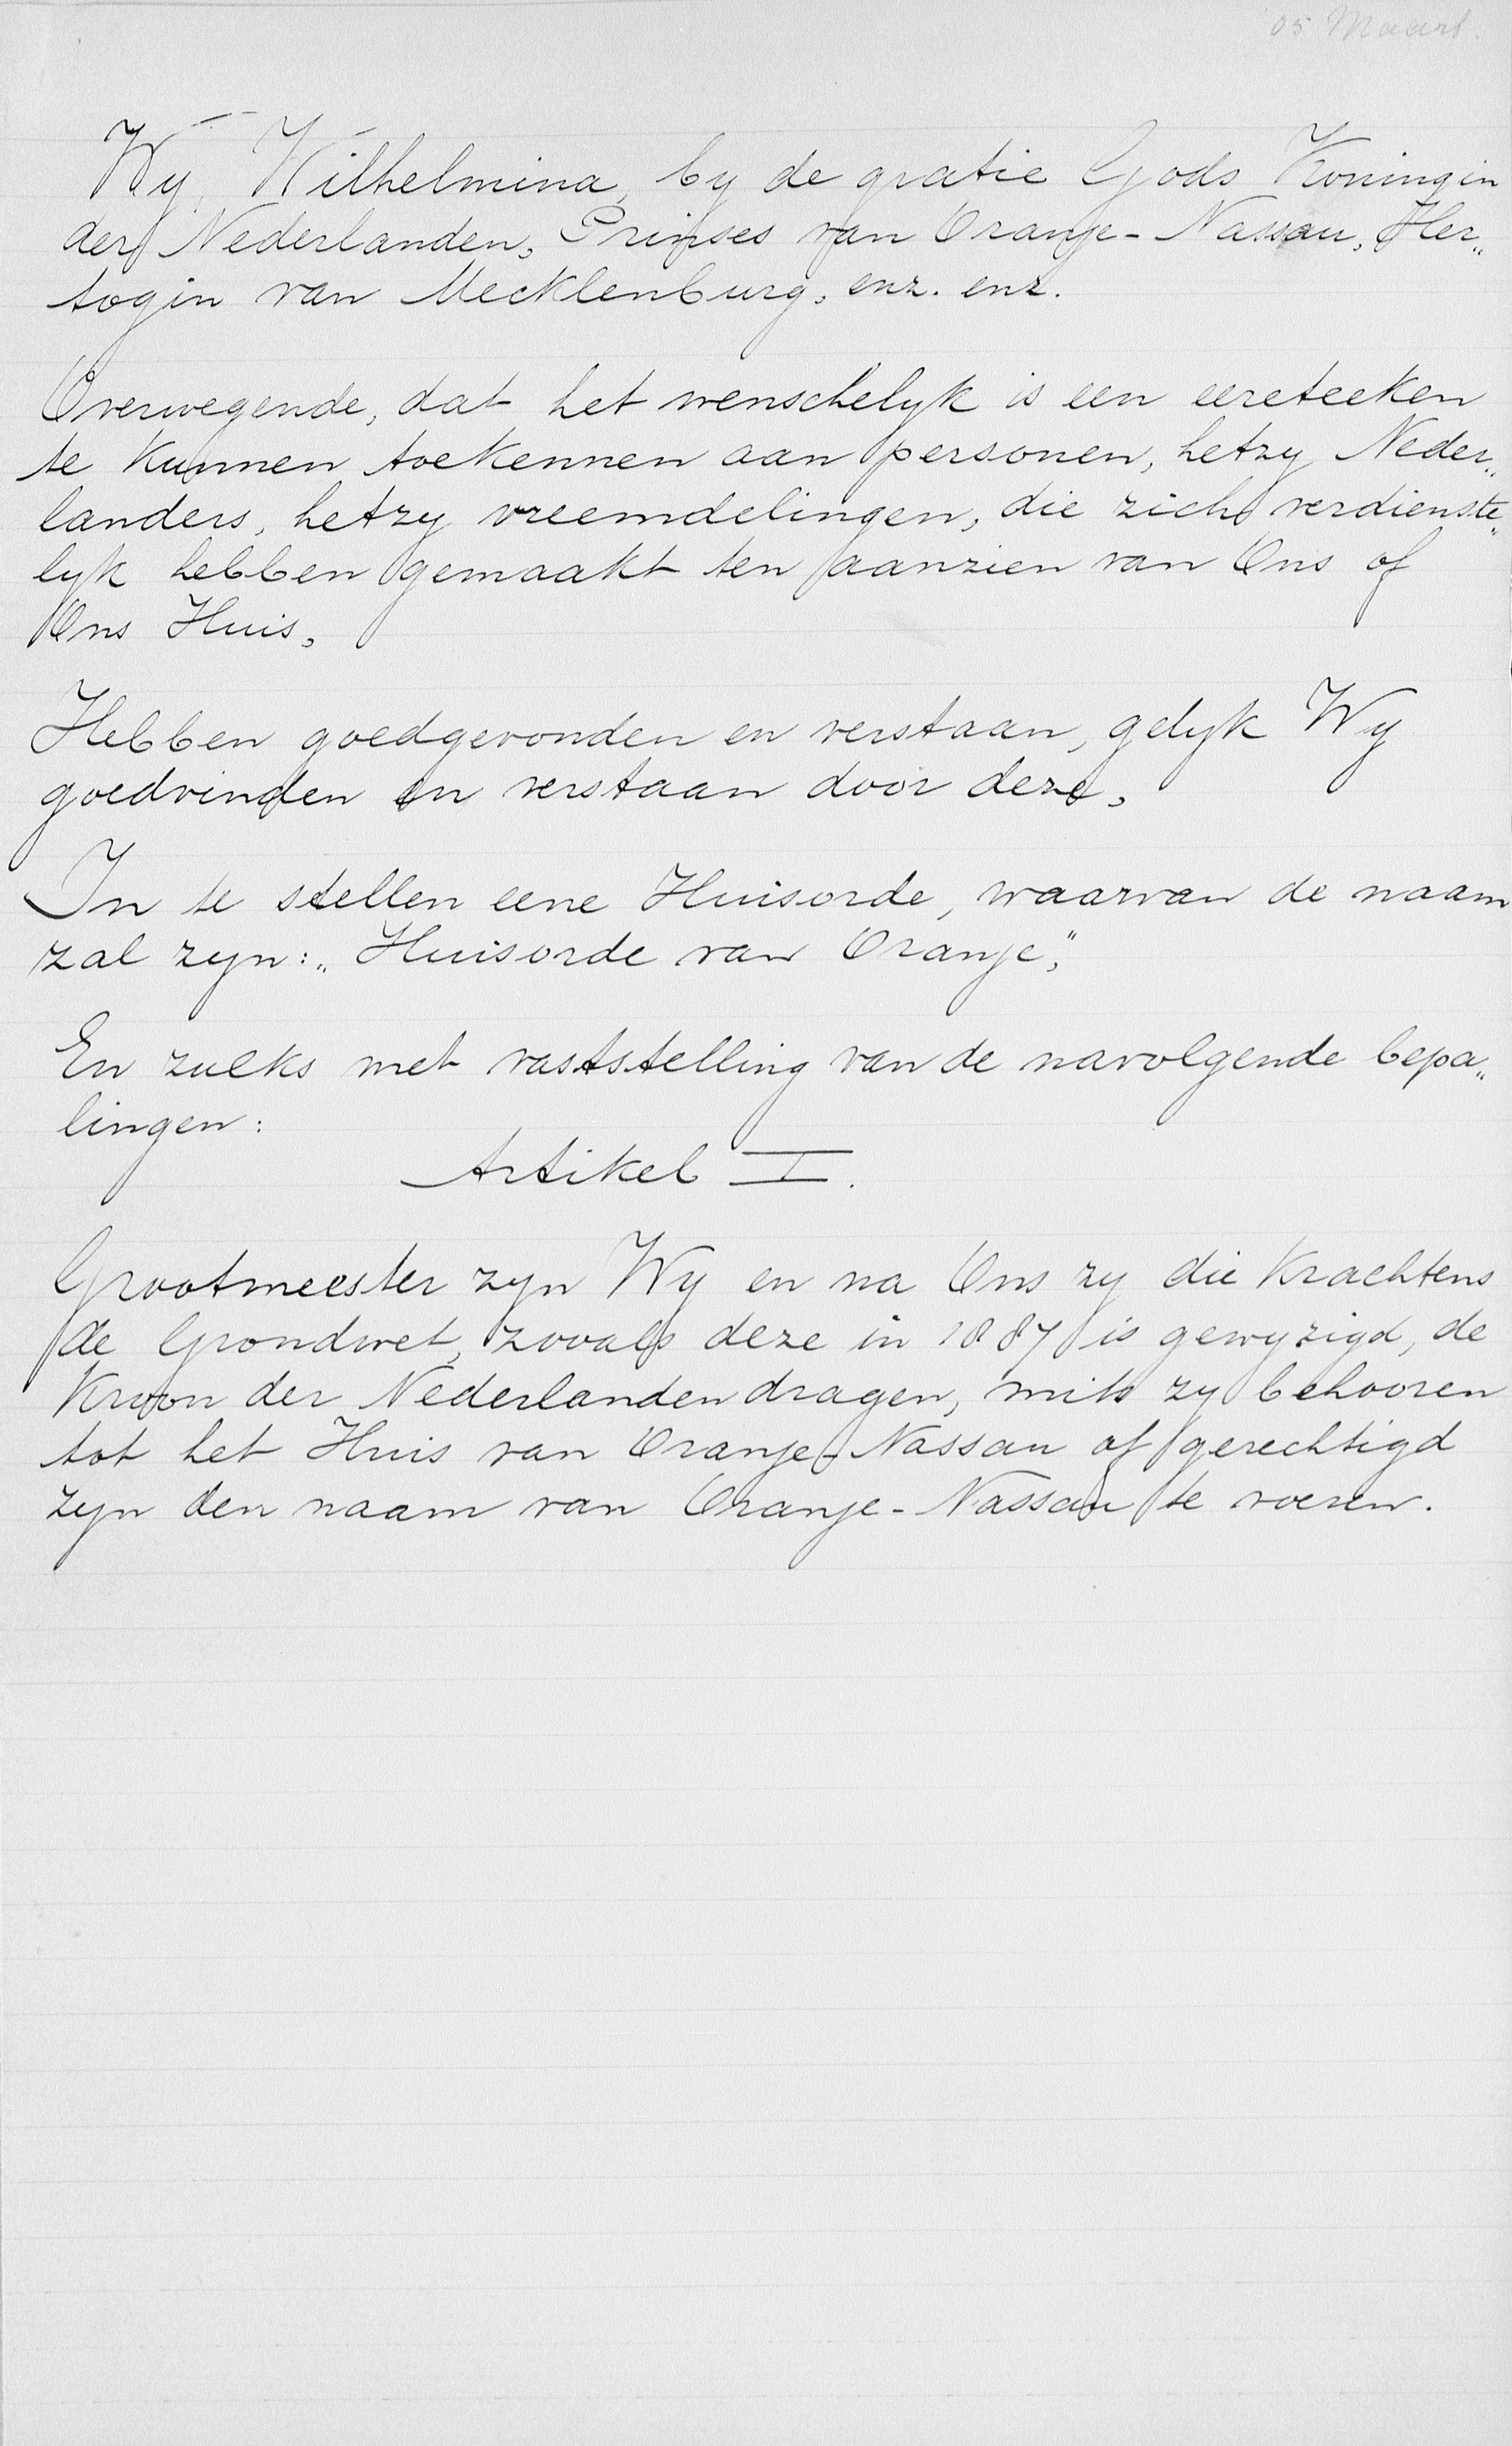 05 Maart.
Wy, Wilhelmina, by de gratie Gods Koningin
der Nederlanden, Prinses van Oranje-Nassau, Her„
togin van Mecklenburg, enz. enz.
Overwegende, dat het wenschelyk is een eereteeken
te kunnen toekennen aan personen, hetzy Neder„
landers, hetzy vreemdelingen, die zich verdienste„
lyk hebben gemaakt ten aanzien van Ons of
Ons Huis,
Hebben goedgevonden en verstaan, gelyk Wy
goedvinden en verstaan door deze,
In te stellen eene Huisorde, waarvan de naam
zal zyn: „Huisorde van Oranje",
En zulks met vaststelling van de navolgende bepa„
lingen:
Artikel I.
Grootmeester zyn Wy en na Ons zy die krachtens
de Grondwet, zooals deze in 1887 is gewyzigd, de
Kroon der Nederlanden dragen, mits zy behooren
tot het Huis van Oranje-Nassau of gerechtigd
zyn den naam van Oranje-Nassau te voeren.